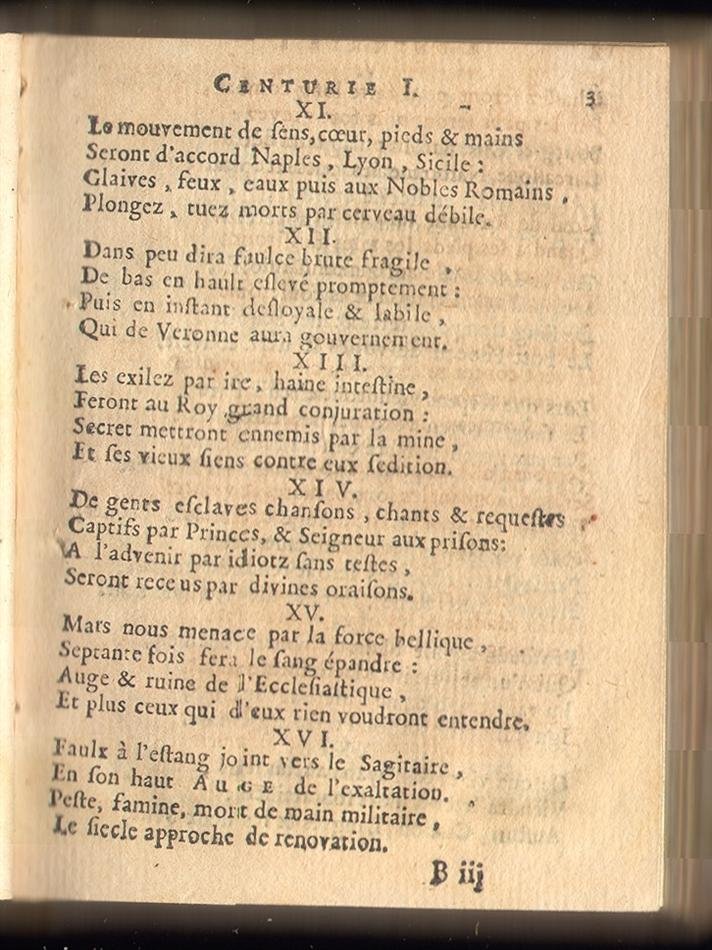 CENTURIE I. 3
XI.
Le mouvement de ſens, cœur, pieds & mains
Seront d'accord Naples, Lyon, Sicile :
Glaives, feux, eaux puis aux Nobles Romains,
Plongez, tuez morts par cerveau débile.
XII.
Dans peu dira faulce brute fragile,
De bas en hault eſlevé promptement :
Puis en inſtant deſloyale & labile,
Qui de Veronne aura gouvernement.
XIII.
Les exilez par ire, haine inteſtine,
Feront au Roy grand conjuration :
Secret mettront ennemis par la mine,
Et ſes vieux ſiens contre eux ſedition.
XIV.
De gents eſclaves chanſons, chants & requeſtes
Captifs par Princes, & Seigneur aux priſons:
A l'advenir par idiotz ſans teſtes,
Seront receus par divines oraiſons.
XV.
Mars nous menace par la force bellique,
Septante fois fera le ſang épandre :
Auge & ruine de l'Eccleſiaſtique,
Et plus ceux qui d'eux rien voudront entendre.
XVI.
Faulx à l'eſtang joint vers le Sagitaire,
En ſon haut AuGE de l'exaltation.
Peſte, famine, mort de main militaire,
Le ſiecle approche de renovation.
B iij